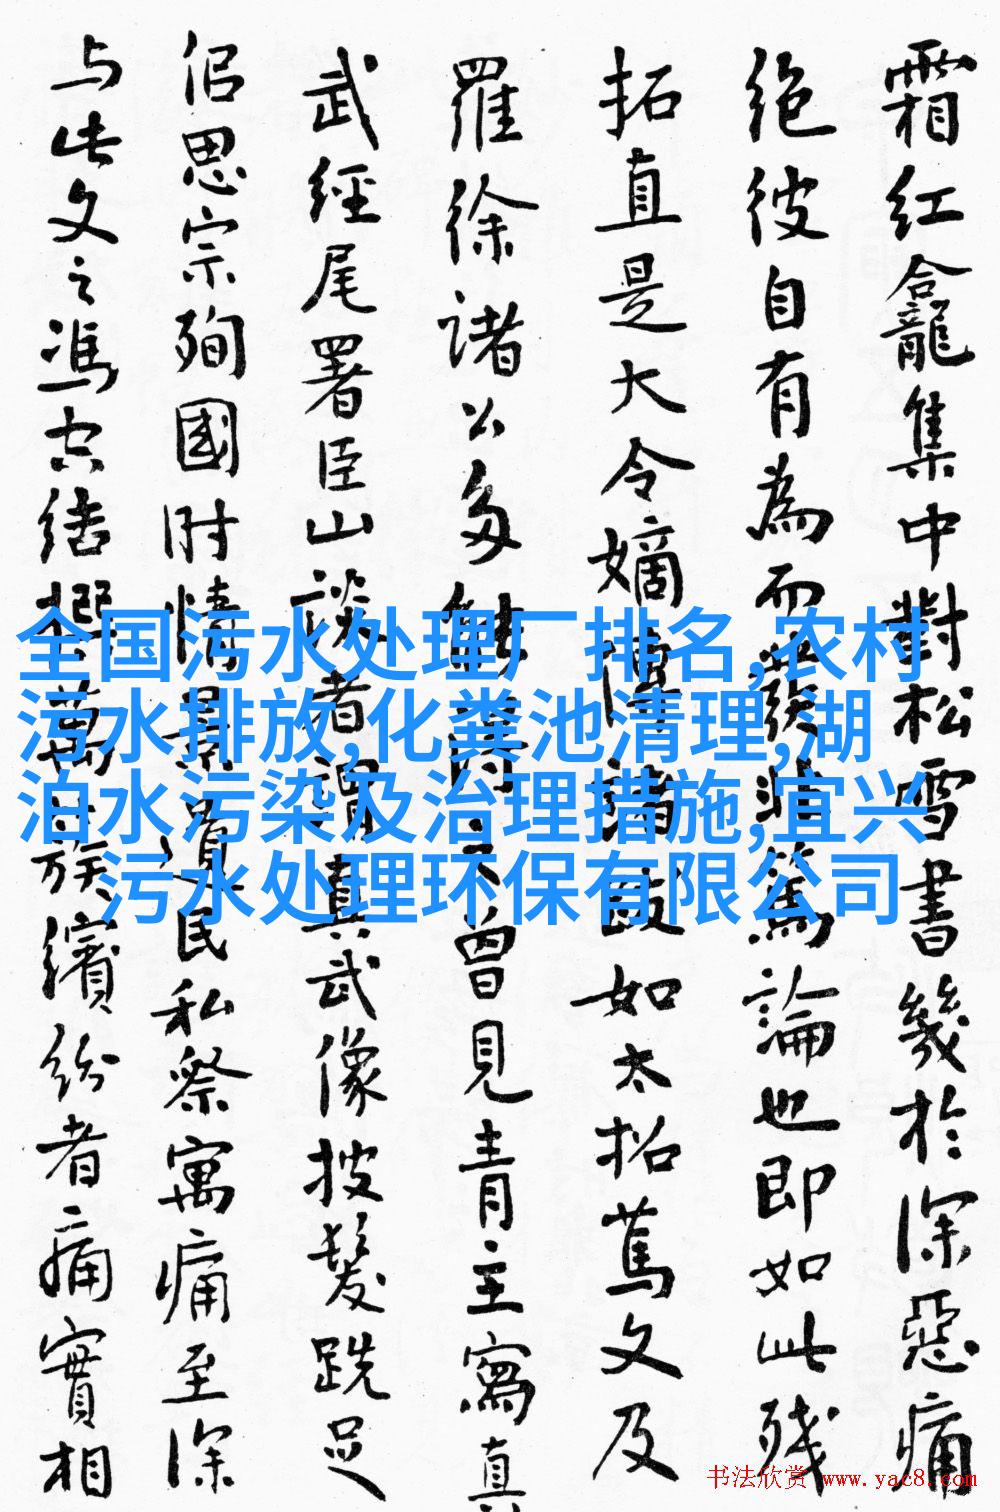 霜红龛集中對松雪書幾於深惡痛
绝彼自有為而發非篤論也即如此残
拓直是大令嫡
如太招蔦文及
羅徐諸公多
曾見青主寫真
武經尾署臣山談者謂真武像披髮跣足
侣思宗殉國时情景
民私祭寓痛至深
与此文之
繽紛者痛實相
全国污水处理厂排名,农村
污水排放,化粪池清理,湖
泊水污染及治理措施,宜兴
污水处理环保有限公司
书法欣赏 www.yac8.com